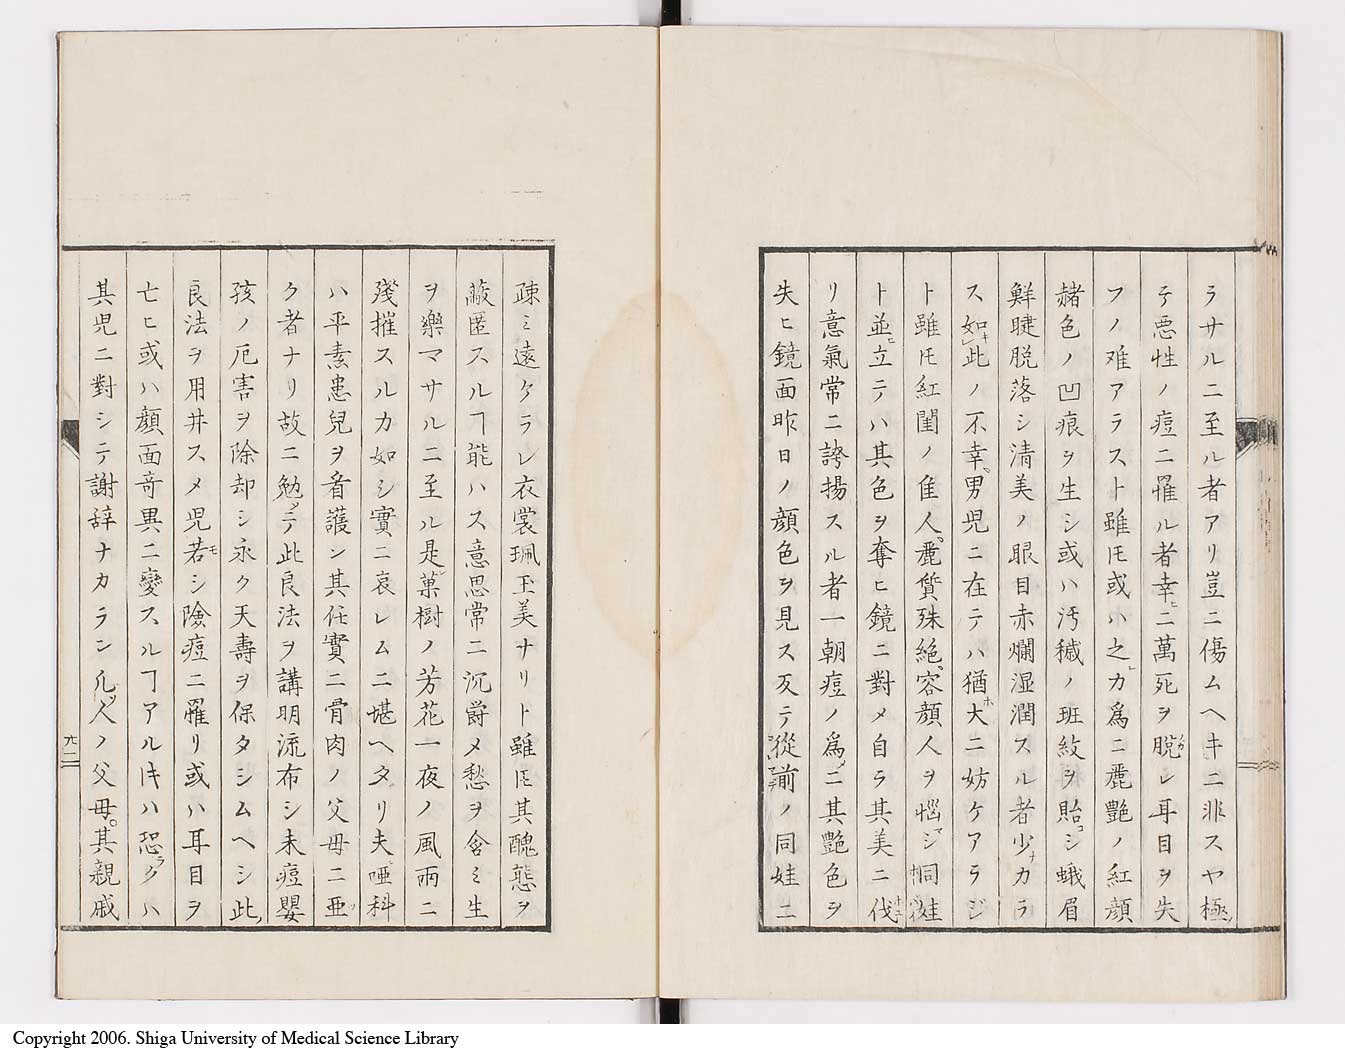 ラサルニ至ル者アリ豈ニ傷ムヘキニ非スヤ極
テ悪性ノ痘ニ罹ル者幸ヒニ萬死ヲ脱カレ耳目ヲ失
フノ难アラスト雖𪜈或ハ之カ爲ニ麗艶ノ紅顔
赭色ノ凹痕ヲ生シ或ハ汚穢ノ班紋ヲ貽コシ蛾眉
鮮睫脱落シ清美ノ眼目赤爛湿潤スル者少ナカラ
ス如キ此ノ不幸男児ニ在テハ猶ホ大ニ妨ケアラジ
ト雖𪜈紅閨ノ佳人麗質殊絶容顔人ヲ惱マシ同娃
ト並ヒ立テハ其色ヲ奪ヒ鏡ニ對メ自ラ其美ニ伐
リ意氣常ニ誇揚スル者一朝痘ノ爲メニ其艶色ヲ
失ヒ鏡面昨日ノ顔色ヲ見ス反テ從前ノ同娃ニ
疎ミ遠ケラレ衣裳珮玉美ナリト雖𪜈其醜態ヲ
蔽匿スルヿ能ハス意思常ニ沉爵メ愁ヲ含ミ生
ヲ樂マサルニ至ル是レ菓樹ノ芳花一夜ノ風雨ニ
殘摧スルカ如シ實ニ哀レムニ堪ヘタリ夫レ唖科
ハ平素患兒ヲ看護ン其任實ニ骨肉ノ父母ニ亜
ク者ナリ故ニ勉メテ此良法ヲ講明流布シ未痘嬰
孩ノ厄害ヲ除却シ永ク天壽ヲ保タシムヘシ此
良法ヲ用井スメ児若モシ險痘ニ罹リ或ハ耳目ヲ
亡ヒ或ハ顔面竒異ニ變スルヿアル𪜈ハ恐ラクハ
其児ニ對シテ謝辞ナカラン凡ソ人ノ父母其親戚
六二
Copyright 2006. Shiga University of Medical Science Library